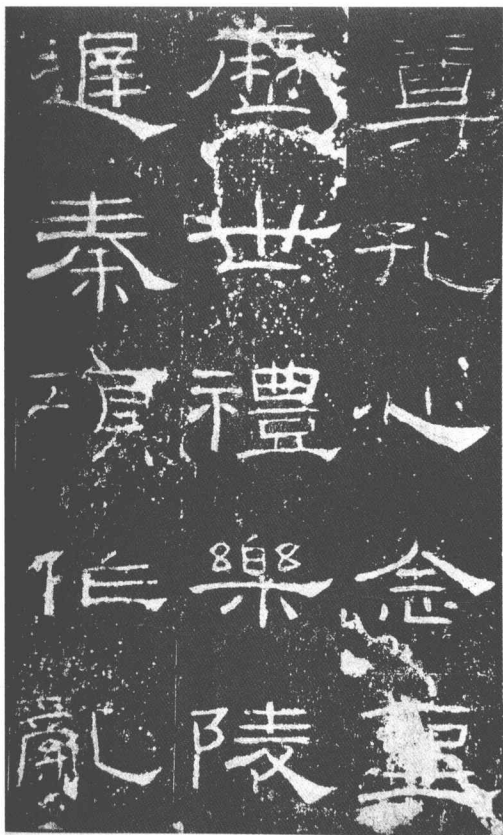 尊孔心念聖
歷世禮樂陵
遲秦項作亂